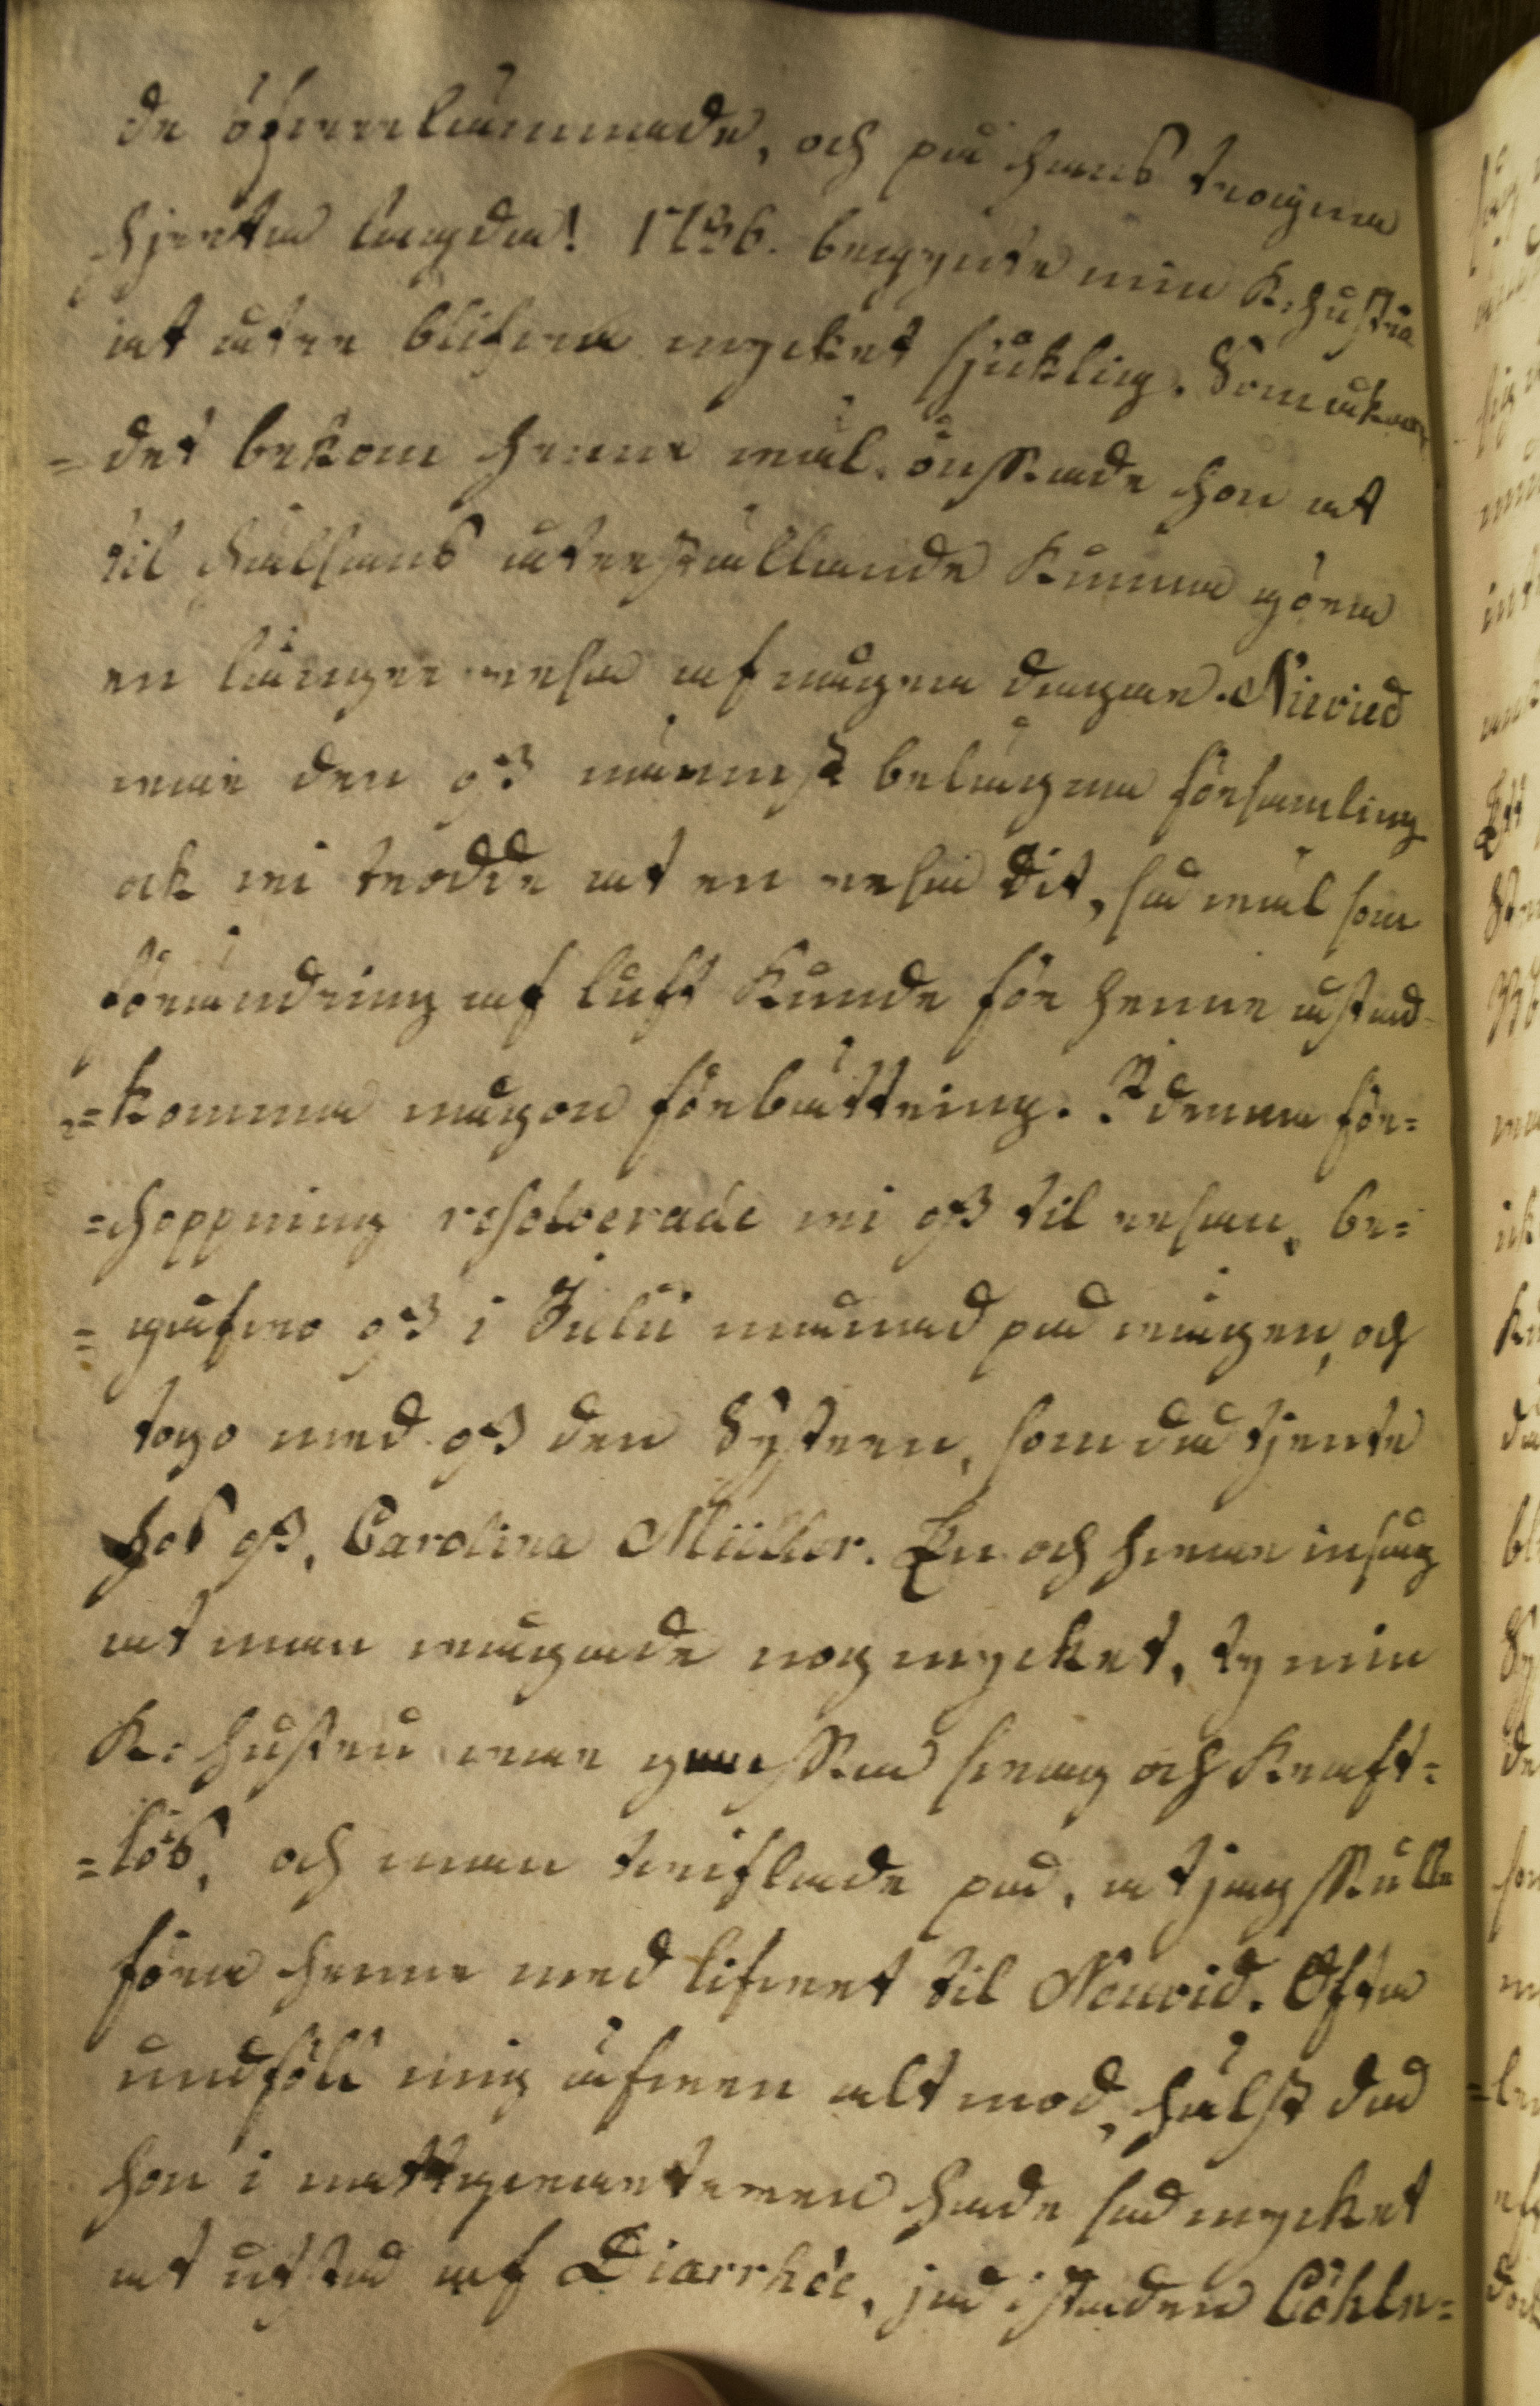 de öfverlämnade, och på hans trogna
hjerta lagda! 1796. begynte min K: hustru
at åter blifva mycket sjuklig. Som åkan-
=det bekom henne wäl. önskade hon at
til hälsans återställande kunna göra
en länger resa af några dagar. Niwied
war den oß närmst belägna församling
ock wi trodde at en resa dit, så wäl som
förändring af luft kunde för henne åstad-
=komma någon förbättring. I denna för=
=hoppning resolverade wi oß til resan, be=
=gåfwo oß i Julii månad på wägen, och
togo med oß den Systern, som då tjente
hos oß, Carolina Müller. En och hwar insåg
at man wågade nog mycket, ty min
K: hustru war ganska swag och kraft=
=lös, och man twiflade på, at jag skulle
föra henne med lifwet til Neuwid. Ofta
undföll mig äfwen alt mod, hälst då
hon i nattqwarteren hade så mycket
at utstå af Diarrhée, ja i staden Cöhln=